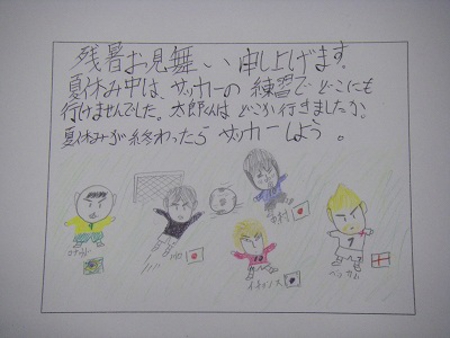 残暑お見舞い申し上げます。
夏休み中は、サッカーの練習でどこにも
行けませんでした。太郎くんはどこか行きましたか。
夏休みが終わったらサッカーしよう。
中村
川口
イナモト
ベッカム